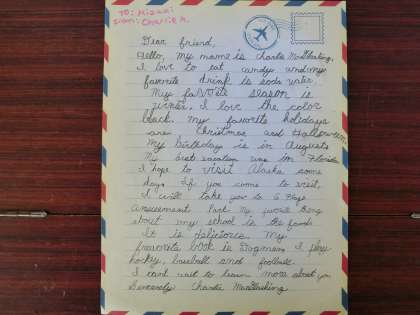 To: Mizuki
From: Charlie M.
Dear friend,
Hello, my name is Charlie
I love to eat candy and my
favorite drink is soda water.
My favorite season is
winter. I love the color
black. My favorite holidays
are Christmas and Halloween.
My birthday is in August.
My best vacation was in Florida
I hope to visit Alaska some
day. If you come to visit,
I will take you to 6 Flags
Amusement Park. My favorite thing
about my school is the food.
It is delicious. My
favorite book is Dogman. I play
hockey, baseball and football.
I can't wait to learn more about you
Sincerely Charlie